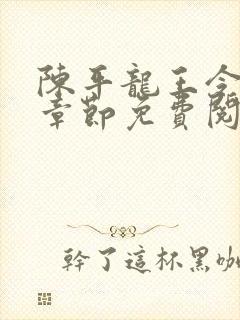 陳平龍王令
章節免費閱
幹了這杯黑咖